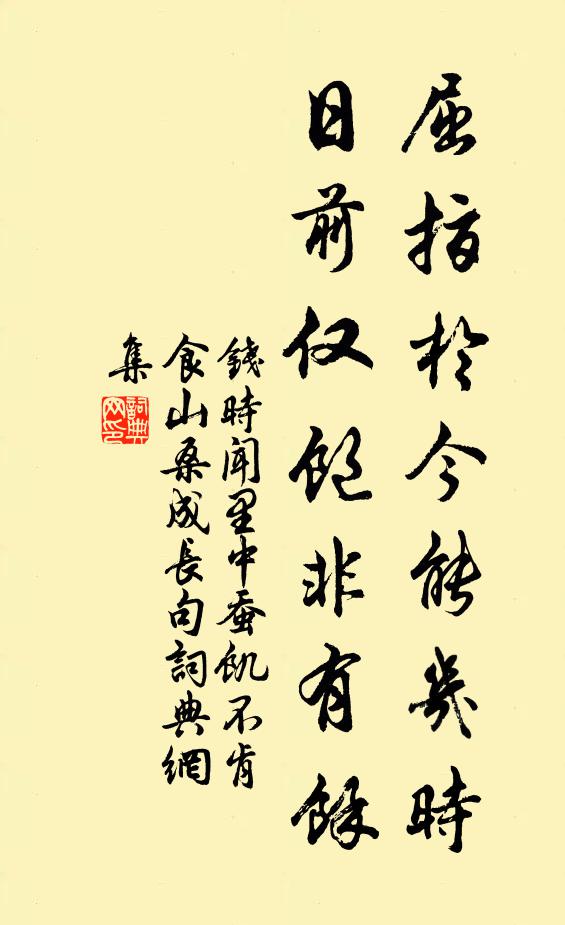 屈指於今能幾時
日前仅飽非有餘
錢時聞里中蚕飢不肯
食山桑成長句詞典網
集
詞典网印